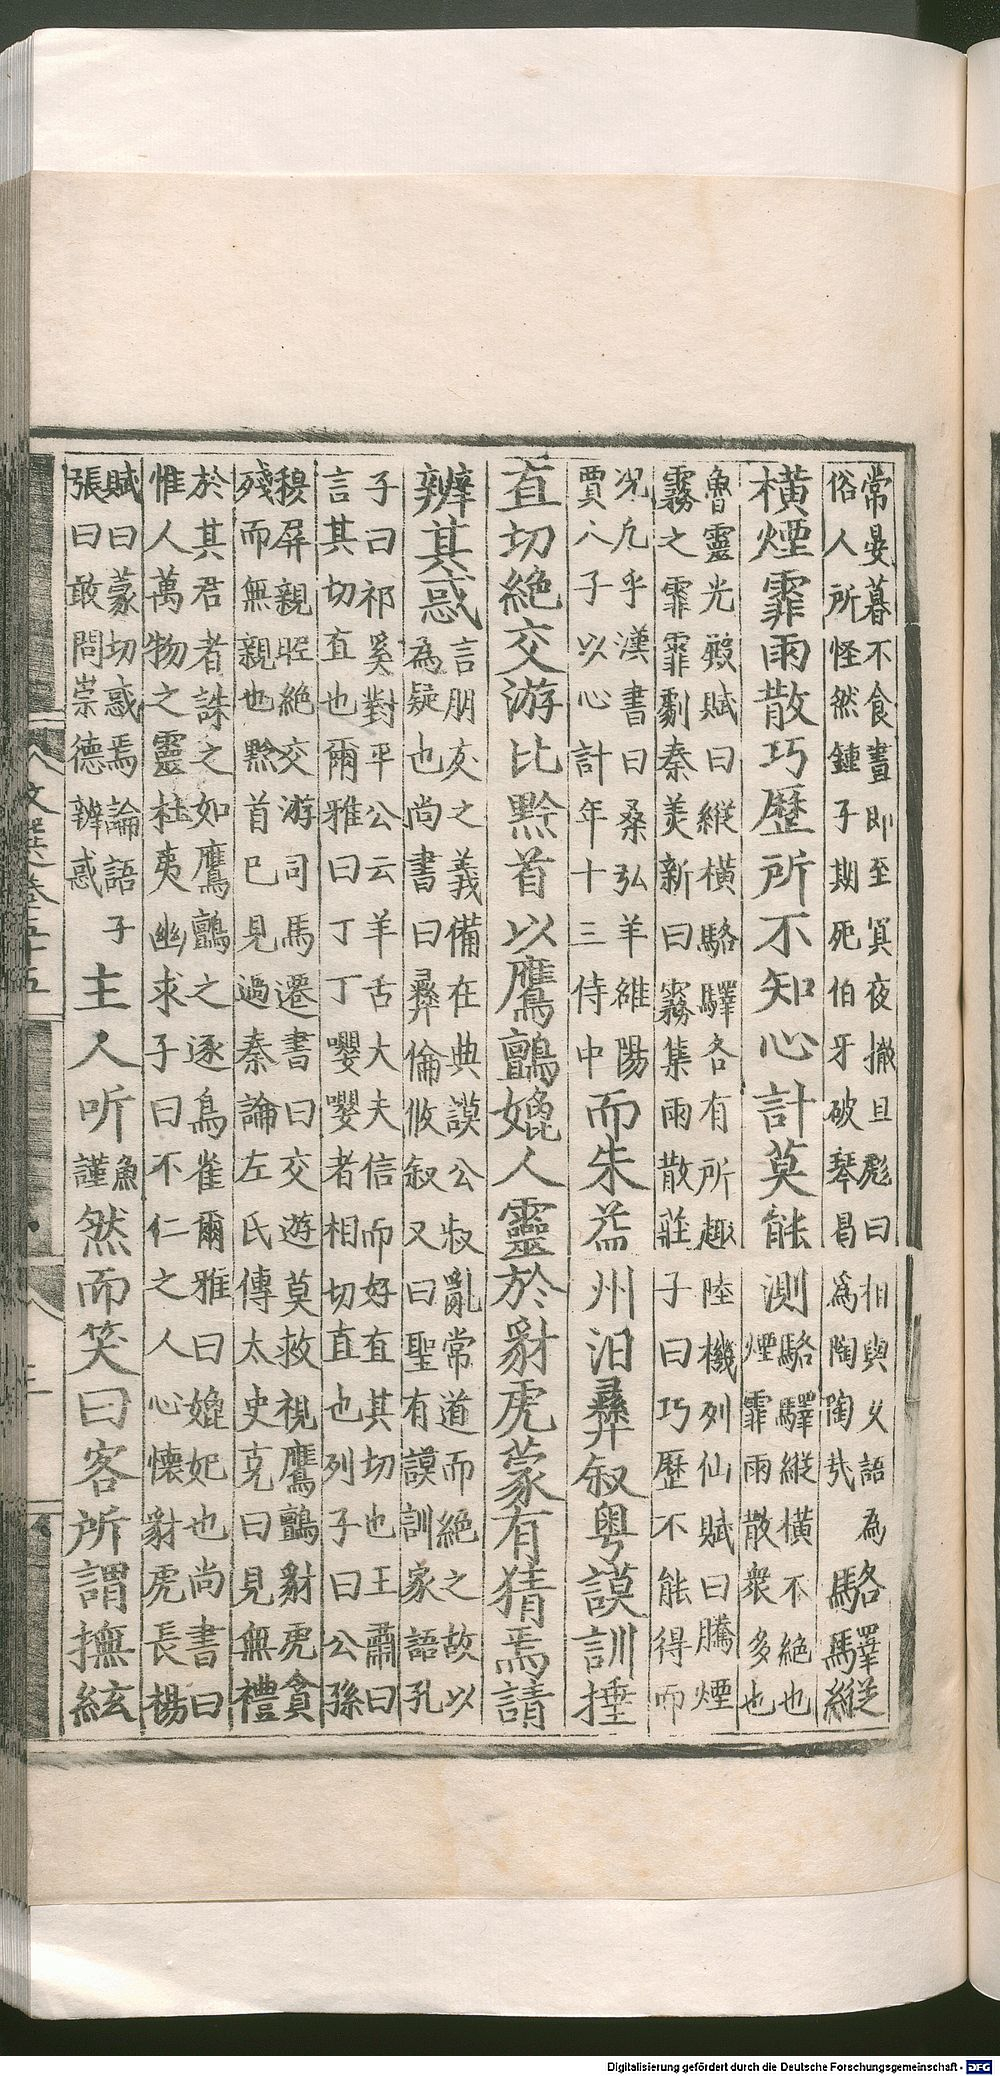 常晏暮不食晝即至冥夜撤旦彪曰相與义語為
俗人所怪然鍾子期死伯牙破琴曷為陶陶哉
駱驛縱
橫煙霏雨散巧歷所不知心計莫能測
駱驛縱橫不絶也
煙霏雨散衆多也
魯靈光殿賦曰縱橫駱驛各有所趣陸機列仙賦曰騰煙
霧之霏霏劇秦美新曰霧集雨散莊子曰巧歷不能得而
况凡乎漢書曰桑弘羊雒陽
賈人子以心計年十三侍中
而朱益州汨彛叙粤謨訓捶
直切絶交游比黔首以鷹鸇媲人靈於豺虎蒙有猜焉請
辨其惑
言朋友之義備在典謨公叔亂常道而絶之故以
為疑也尚書曰彛倫攸叙又曰聖有謨訓家語孔
子曰祁奚對平公云羊舌大夫信而好直其切也王肅曰
言其切直也爾雅曰丁丁嚶嚶者相切直也列子曰公孫
穆屏親昵絶交游司馬遷書曰交遊莫救視鷹鸇豺虎貪
殘而無親也黔首已見過秦論左氏傳太史克曰見無禮
於其君者誅之如鷹鸇之逐鳥雀爾雅曰媲妃也尚書曰
惟人萬物之靈杜夷幽求子曰不仁之人心懷豺虎長楊
賦曰蒙切惑焉論語子
張曰敢問崇德辨惑
主人听
魚
謹
然而笑曰客所謂撫絃
文選卷五十五
Digitalisierung gefördert durch die Deutsche Forschungsgemeinschaft - DFG